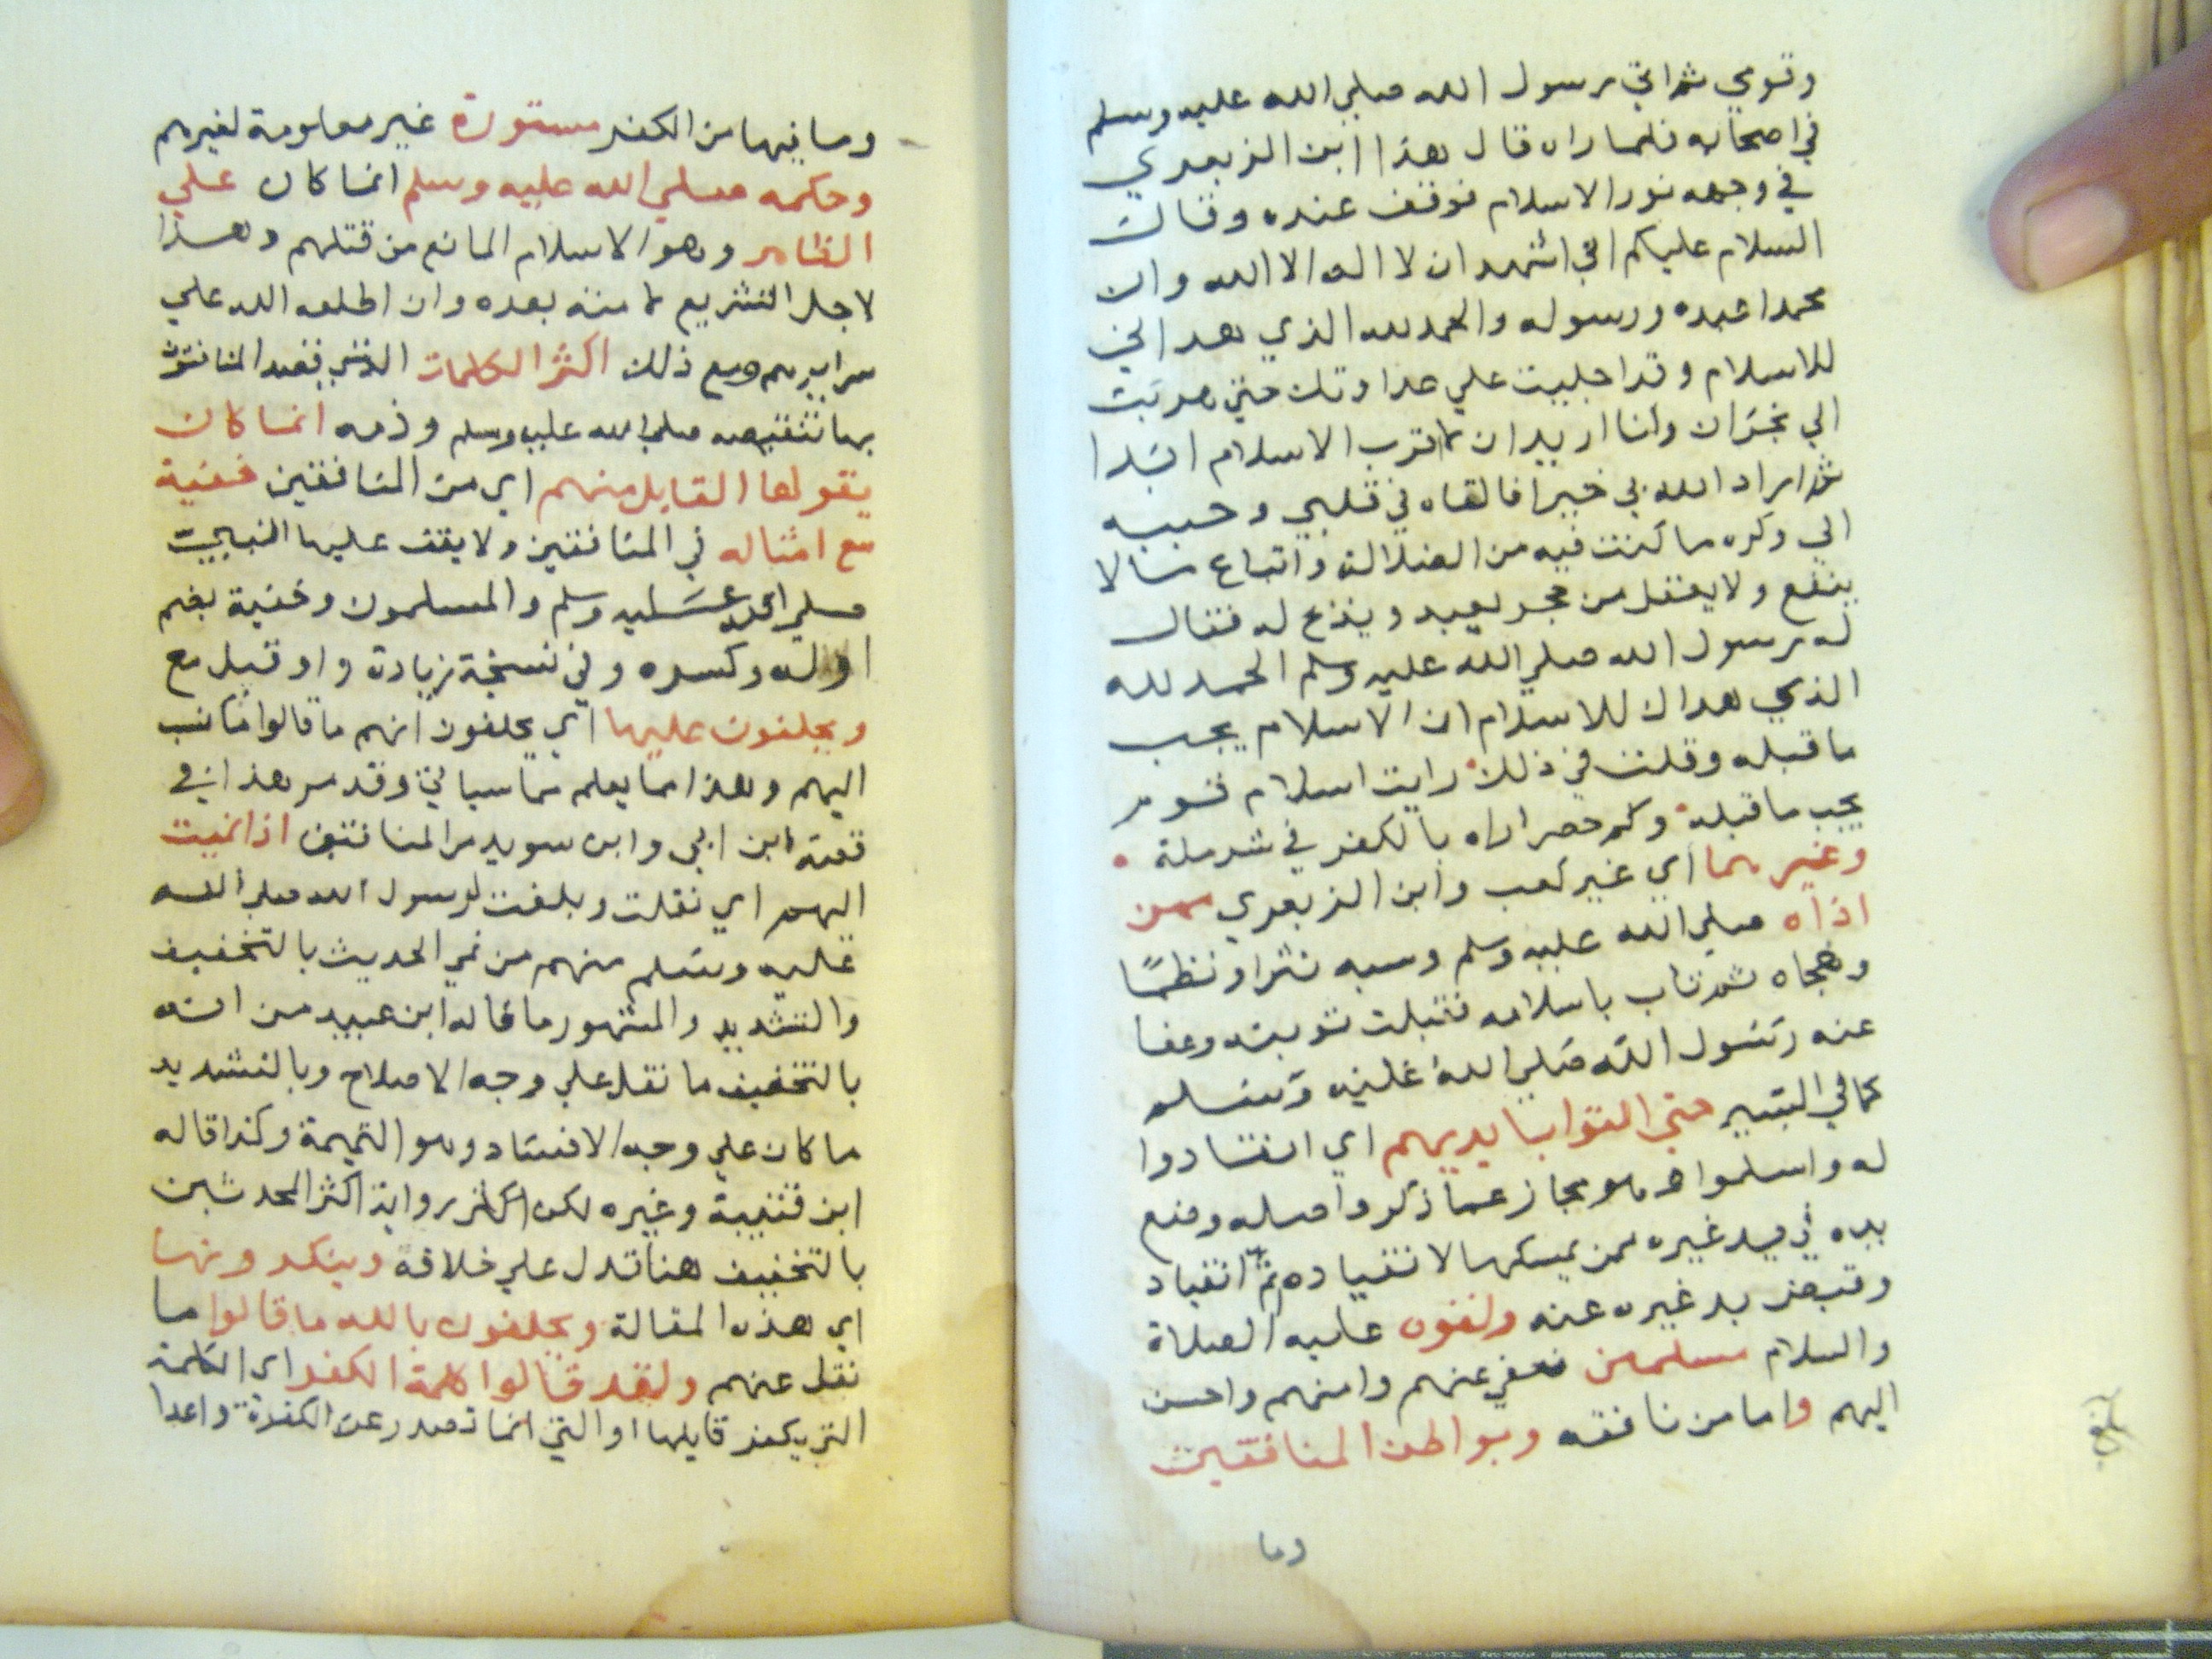 وقومي ثم اتي رسول الله صلي الله عليه وسلم
في اصحابه فلما راه قال هذا ابن الزبعري
في وجهه نور الاسلام فوقف عنده وقال
السلام عليكم اني اشهد ان لا اله الا الله وان
محمدا عبده ورسوله والحمد لله الذي هداني
للاسلام وقد اجلبت علي عداوتك حتي هربت
الي نجران وانا اريد ان لا اقرب الاسلام ابدا
ثم اراد الله بي خيرا فالقاه في قلبي وحببه
الي وكره ما كنت فيه من الضلالة واتباع ما لا
ينفع ولا يعقل من حجر يعبد ويذبح له فقال
له رسول الله صلي الله عليه وسلم الحمد لله
الذي هداك للاسلام ان الاسلام يجب
ما قبله وقلت في ذلك رايت اسلام قوم
يجب ما قبله وكم حصر اراه بالكفر في شر ملة
وغيرهما اي غير كعب وابن الزبعري ممن
اذاه صلي الله عليه وسلم وسبه نثرا ونظمًا
وهجاه ثم تاب باسلامه فقبلت توبته وعفا
عنه رسول الله صلي الله عليه وسلم
كما في السير حتي القوا بايديهم اي انقادوا
له واسلموا وهو مجاز عما ذكر واصله وضع
يده في يد غيره لمن يمسكها لانقياده ثم انقياد
وقبض يد غيره عنه ولقوه عليه الصلاة
والسلام مسلمين فعفي عنهم وامنهم واحسن
اليهم واما من نافقه وبواطن المنافقين
وما
بلغ
وما فيها من الكفر مستورة غير معلومة لغيرهم
وحكمه صلي الله عليه وسلم انما كان علي
الظاهر وهو الاسلام المانع من قتلهم وهذا
لاجل التشريع لامته بعده وان اطلعه الله علي
سرايرهم ومع ذلك اكثر الكلمات التي قصد المنافقون
بها تنقيصه صلي الله عليه وسلم وذمه انما كان
يقولها القايل منهم اي من المنافقين خفية
مع امثاله في المنافقين ولا يقف عليها النبي
صلي الله عليه وسلم والمسلمون وخفية بضم
اوله وكسره وفي نسخة زيادة واو قبل مع
ويحلفون عليها اي يحلفون انهم ما قالوا ما نسب
اليهم وهذا مما يعلم مما سياتي وقد مر هذا في
قصة ابن ابي وابن سويد من المنافقين اذا نميت
اليهم اي نقلت وبلغت لرسول الله صلي الله
عليه وسلم منهم من نمي الحديث بالتخفيف
والتشديد والمشهور ما قاله ابن عبيد من انه
بالتخفيف ما نقل علي وجه الاصلاح وبالتشديد
ما كان علي وجه الافساد وهو النميمة وكذا قاله
ابن قتيبة وغيره لكن اكثر رواية اكثر المحدثين
بالتخفيف هنا تدل علي خلافه وينكرونها
اي هذه المقالة ويحلفون بالله ما قالوا ما
نقل عنهم ولقد قالوا كلمة الكفر اي الكلمة
التي يكفر قايلها او التي انما تصدر عن الكفرة واعدا